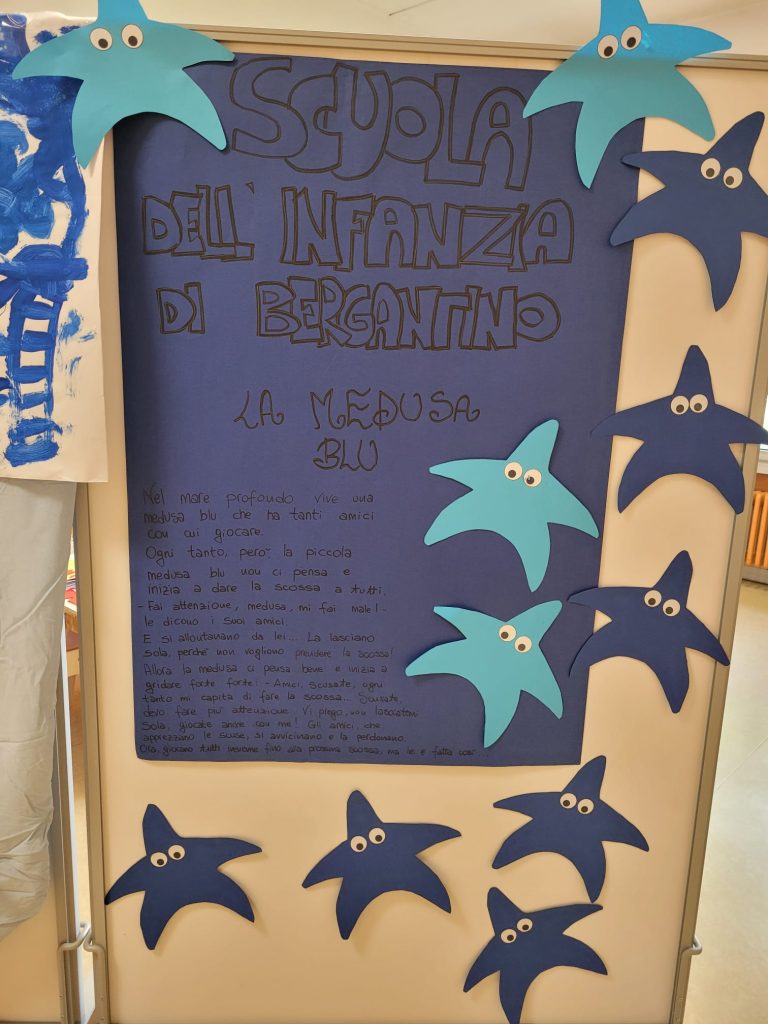 SCUOLA
DELL' INFANZIA
DI BERGANTINO
LA MEDUSA
BLU
Nel mare profondo vive una
medusa blu che ha tanti amici
con cui giocare.
Ogni tanto, però la piccola
medusa blu non ci pensa e
inizia a dare la scossa a tutti.
- Fai attenzione, medusa, mi fai male! -
le dicono i suoi amici.
E si allontanano da lei... La lasciano
sola, perché non vogliono prendere la scossa!
Allora la medusa ci pensa bene e inizia a
gridare forte forte: - Amici, scusate, ogni
tanto mi capita di fare la scossa... Scusate,
devo fare più attenzione. Vi prego, non lasciatemi
sola, giocate ancora con me! Gli amici, che
apprezzano le scuse, si avvicinano e la perdonano.
Ora, giocano tutti insieme fino alla prossima scossa, ma lei è fatta così...